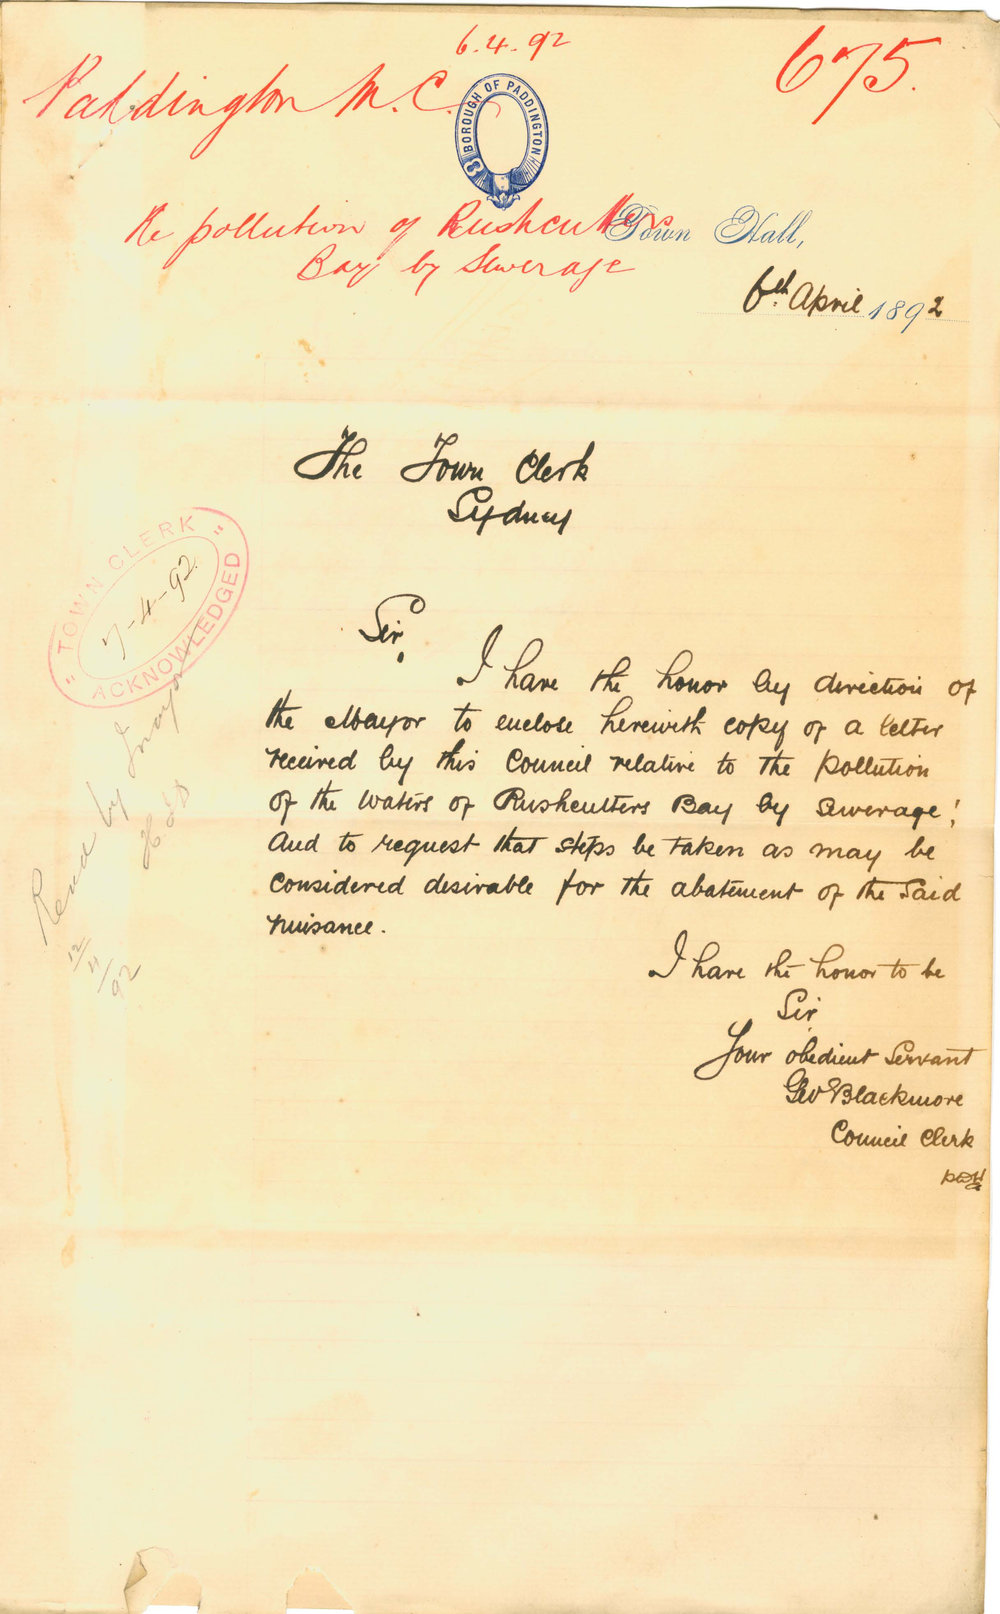 6.4.92
675.
Paddington M.C.
BOROUGH OF PADDINGTON
Re pollution of Rushcutters
Bay by Sewerage
Town Hall,
6th April 1892
The Town Clerk
Sydney
"TOWN CLERK"
7-4-92
ACKNOWLEDGED
Sir,
I have the honor by direction of
the Mayor to enclose herewith copy of a letter
received by this Council relative to the pollution
of the waters of Rushcutters Bay by Sewerage;
And to request that steps be taken as may be
Considered desirable for the abatement of the Said
nuisance.
I have the honor to be
Sir
Your obedient Servant
Geo Blackmore
Council Clerk
Read by Mayor